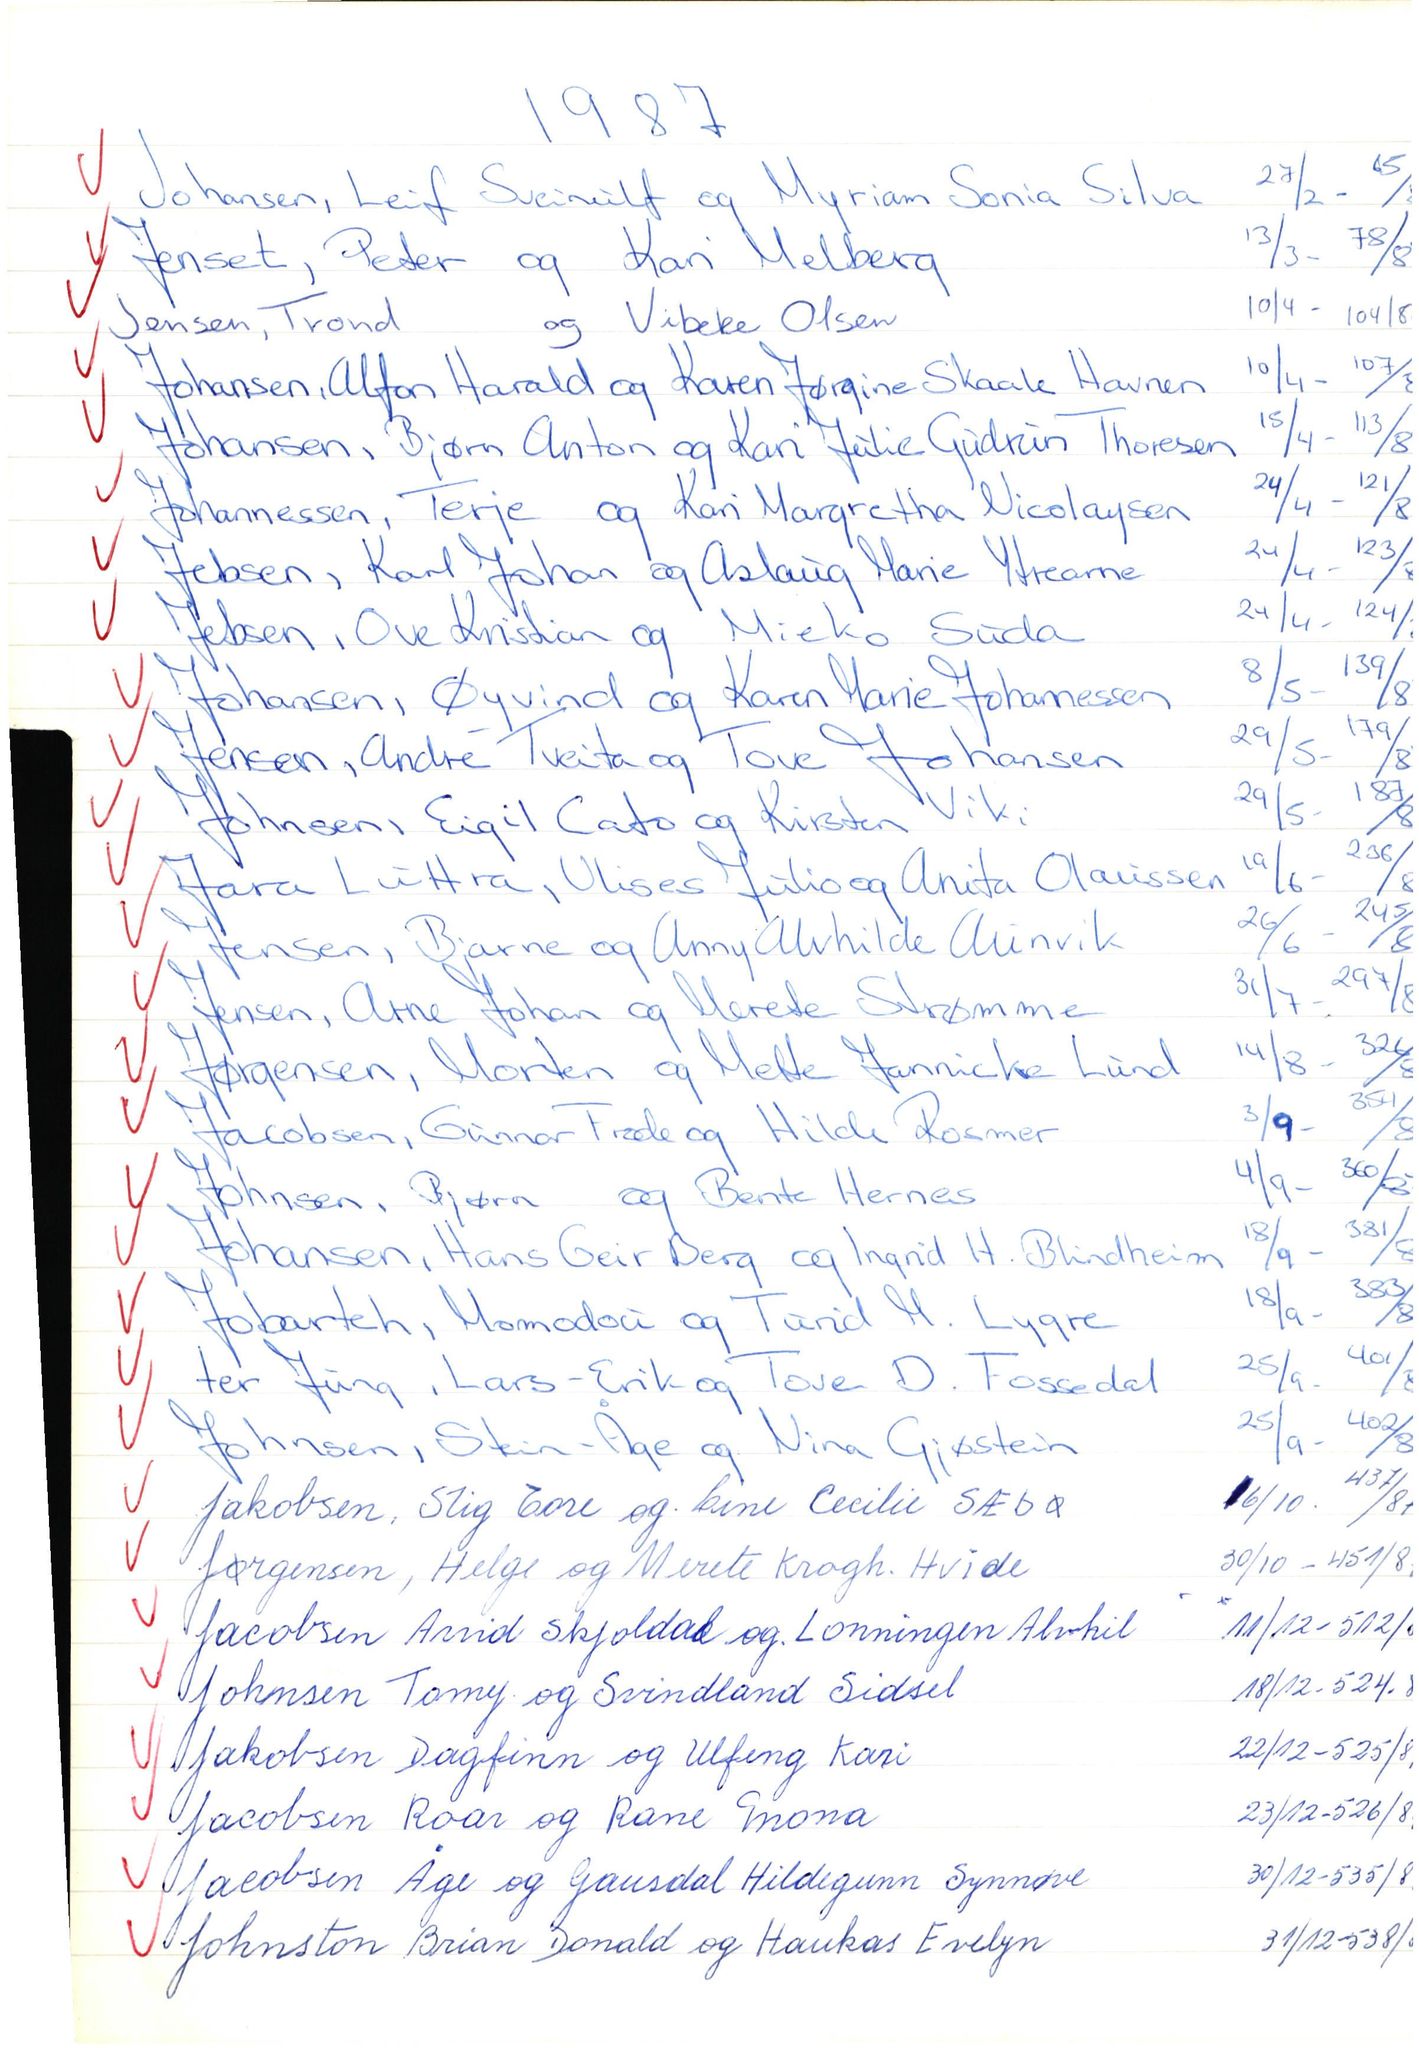 1987
Johansen, Leif Sveinulf og Myriam Sonia Silva 27/2 - 65/
Jenset, Peder og Kari Melberg 13/3 - 78/8
Jensen, Trond og Vibeke Olsen 10/4 - 104/8
Johansen, Alfon Harald og Karen Jørgine Skaale Havnen 10/4 - 107/8
Johansen, Bjørn Anton og Kari Julie Gudrun Thoresen 15/4 - 113/8
Johannessen, Terje og Kari Margretha Nicolaysen 24/4 - 121/8
Jebsen, Karl Johan og Aslaug Marie Ytrearne 24/4 - 123/8
Jebsen, Ove Kristian og Mieko Suda 24/4 - 124/
Johansen, Øyvind og Karen Marie Johannessen 8/5 - 139/8
Jensen, André Tveita og Tove Johansen 29/5 - 179/8
Johnsen, Eigil Cato og Kirsten Viki 29/5 - 187/8
Jara Luttra, Ulises Julio og Anita Olaussen 19/6 - 236/8
Jensen, Bjarne og Anny Alvhilde Alinvik 26/6 - 245/8
Jensen, Arne Johan og Merete Strømme 31/7 - 297/8
Jørgensen, Morten og Mette Jannicke Lund 14/8 - 326/8
Jacobsen, Gunnar Frede og Hilde Rosmer 3/9 - 354/8
Johnsen, Bjørn og Bente Hernes 4/9 - 360/8
Johansen, Hans Geir Berg og Ingrid H. Blindheim 18/9 - 381/8
Jobarteh, Momodou og Turid M. Lygre 18/9 - 383/8
ter Jung, Lars-Erik og Tove D. Fossedal 25/9 - 401/8
Johnsen, Stein-Åge og Nina Gjøstein 25/9 - 402/8
Jakobsen, Stig Tore og Line Cecilie SÆbø 16/10. 437/8
Jørgensen, Helge og Merete Krogh. Hvide 30/10 - 451/8
Jacobsen Arvid Skjoldal og. Lonningen Alvhil 11/12 - 512/
Johnsen Tomy og Svindland Sidsel 18/12 - 524.8
Jakobsen Dagfinn og Ulfeng Kari 22/12 - 525/8
Jacobsen Roar og Rane Mona 23/12 - 526/8
Jacobsen Åge og Gausdal Hildegunn Synnøve 30/12 - 535/8
Johnston Brian Donald og Haukas Evelyn 31/12 - 538/